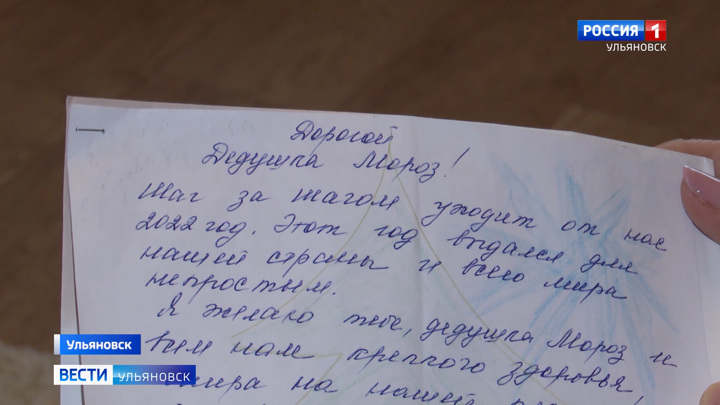 РОССИЯ 1
УЛЬЯНОВСК
Дорогой
Дедушка Мороз!
Шаг за шагом уходит от нас
2022 год. Этот год выдался для
нашей страны и всего мира
непростым.
Я желаю тебе, дедушка Мороз и
всем нам крепкого здоровья,
мира на нашей
Ульяновск
ВЕСТИ УЛЬЯНОВСК